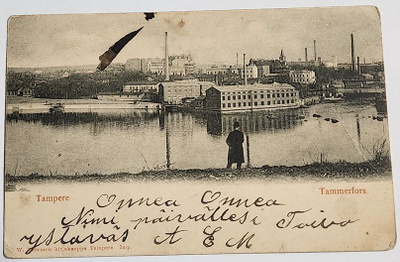 Tampere Tammerfors.
Onnea Onnea
Nimi päivällesi Toivo
ystäväs A E M
Kirjakauppa Tampere